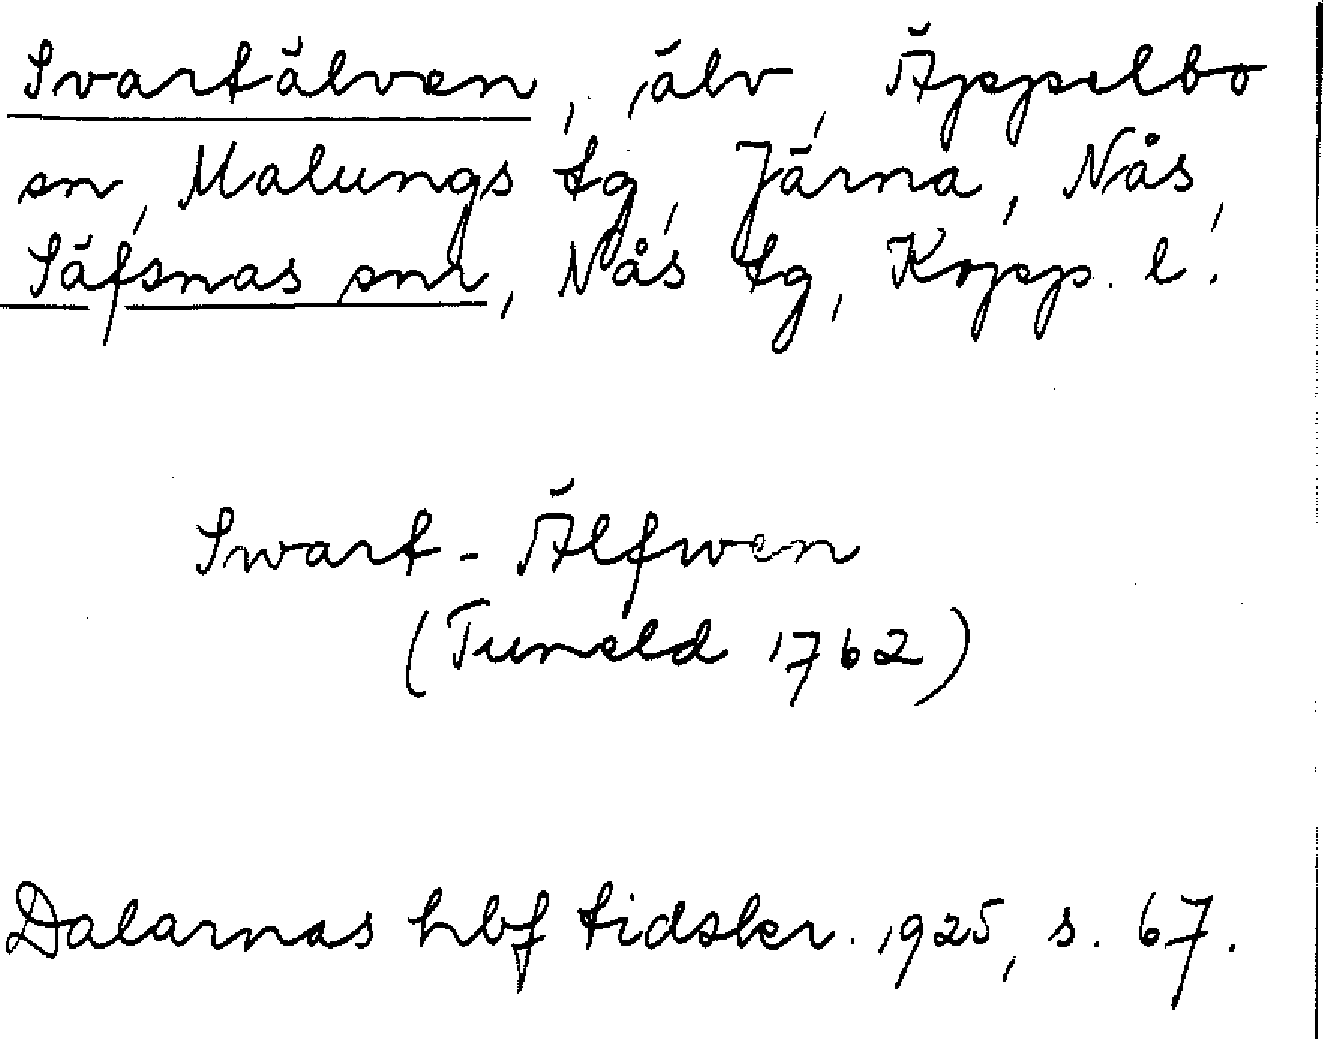 Svartälven, älv, Äppelbo
sn, Malungs tg, Järna, Nås,
Säfsnas snr, Nås tg, Kopp. l.
Swart-Älfwen
(Tuneld 1762)
Dalarnas hbf tidskr. 1925, s. 67.